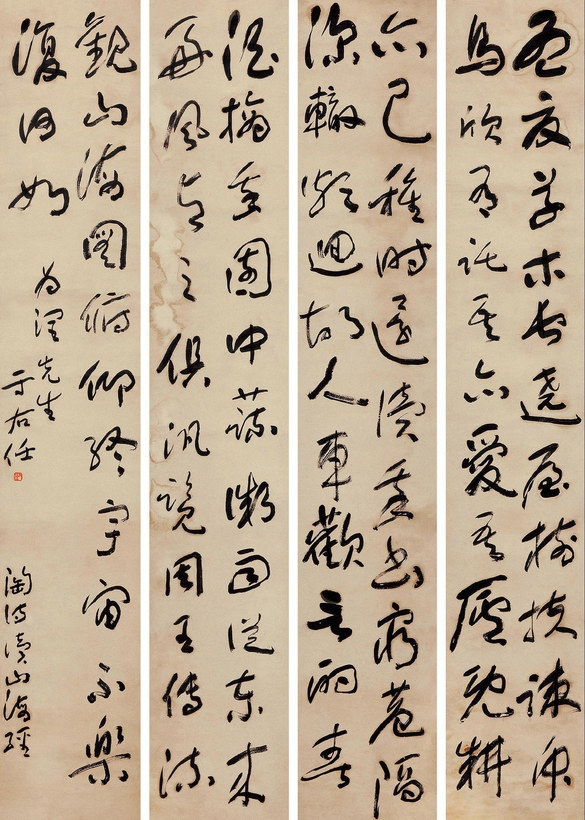 孟夏草木長遶屋樹扶疎眾
鳥欣有託吾亦愛吾廬既耕
亦已種時還讀我書窮巷隔
深轍頗迴故人車歡言酌春
酒摘我園中蔬微雨從東來
好風與之俱汎覽周王傳流
觀山海圖俯仰終宇宙不樂
復何如
為先生
于右任
陶詩讀山海經